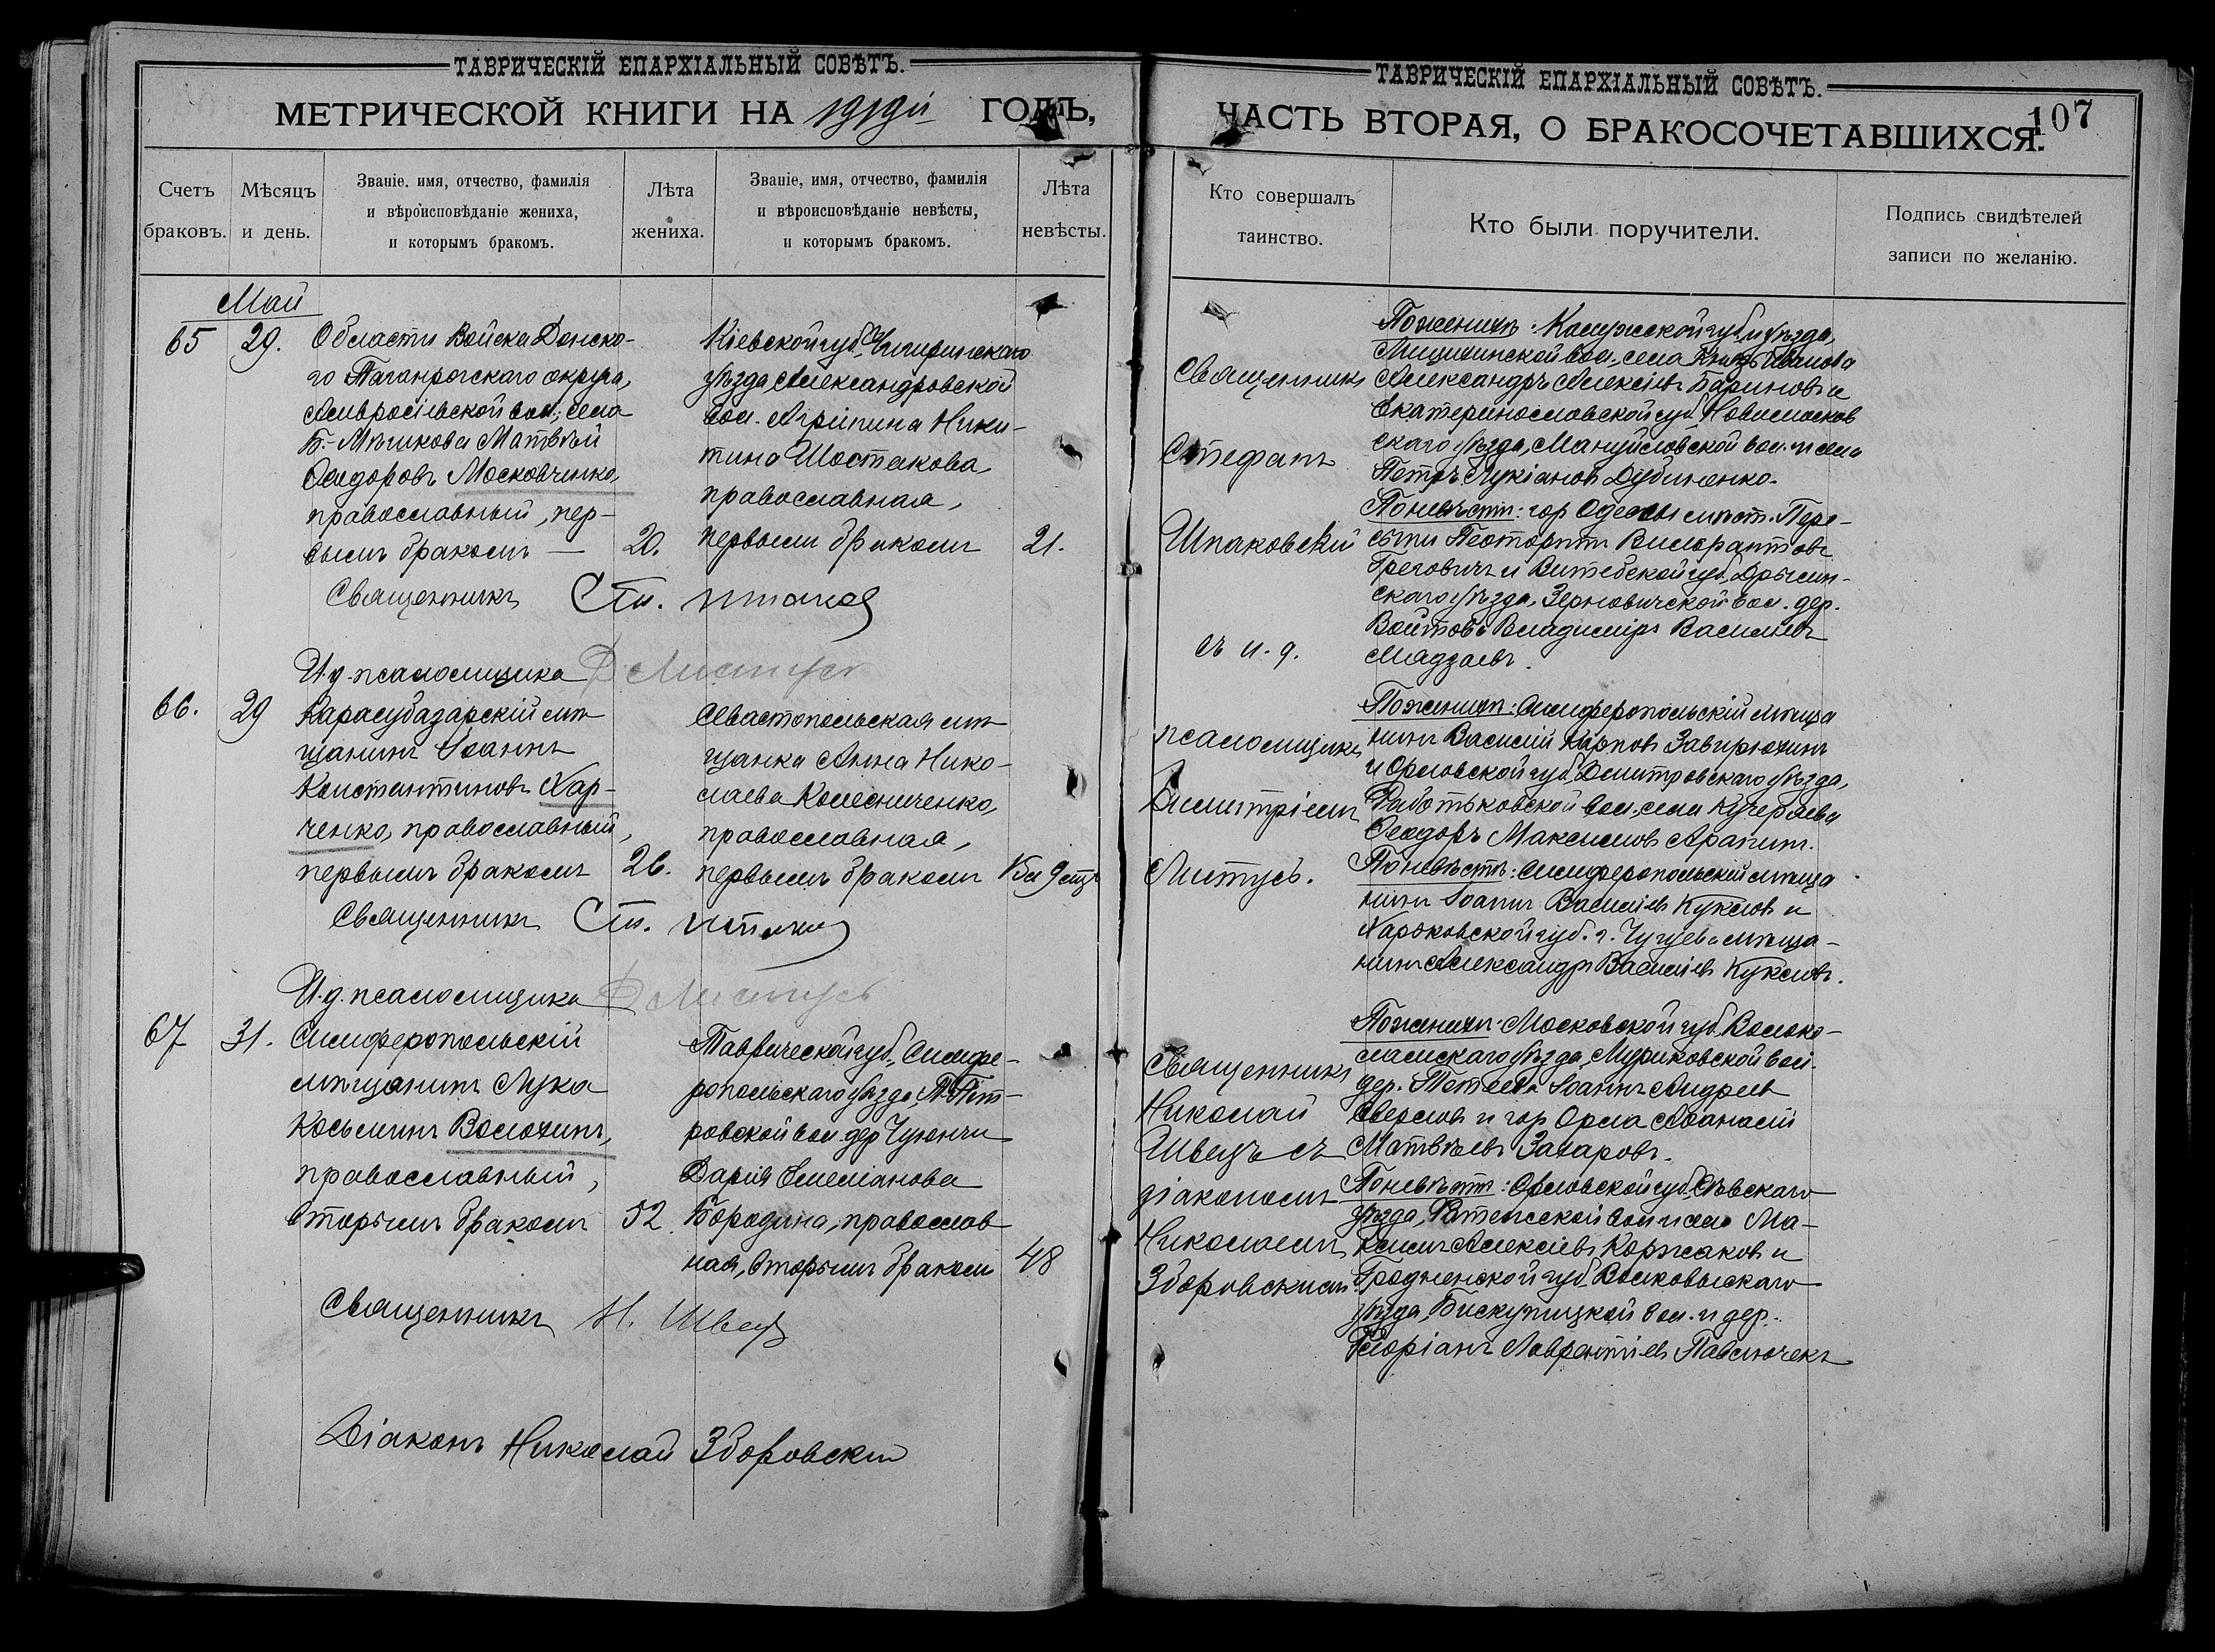 ТАВРИЧЕСКІЙ ЕПАРХІАЛЬНЫЙ СОВѢТЪ.
МЕТРИЧЕСКОЙ КНИГИ НА 1919й ГОДЪ,
Счетъ браковъ.
Мѣсяцъ и день.
Званіе, имя, отчество, фамилія
и вѣроисповѣданіе жениха,
и которымъ бракомъ.
Лѣта жениха.
Званіе, имя, отчество, фамилія
и вѣроисповѣданіе невѣсты,
и которымъ бракомъ.
Лѣта невѣсты.
Май
65
29.
Области Войска Донско-
го Таганрогскаго округа,
Амвросіевской вол., села
Б.-Мѣшкова Матвѣй
Ѳеодоровъ Московченко,
православный, пер-
вымъ бракомъ —
20.
Кіевской губ. Чигиринскаго
уѣзда, Александровской
вол. Агрипина Ники-
тина Шостакова,
православная,
первымъ бракомъ
21.
Священникъ Ст.
И.д. псаломщика Д Листусъ
66.
29
Карасубазарскій мѣ-
щанинъ Іоаннъ
Константиновъ Хар-
ченко, православный,
первымъ бракомъ
26.
Севастопольская мѣ-
щанка Анна Нико-
лаева Колесниченко,
православная,
первымъ бракомъ
Священникъ Ст.
И.д. псаломщика Д Листусъ
67
31.
Симферопольскій
мѣщанинъ Лука
Косьминъ Волохинъ,
православный,
вторымъ бракомъ
52.
Таврической губ., Симфе-
ропольскаго уѣзда,
ровской вол дер
Дарія Емеліанова
Бородина, православ
ная, вторымъ бракомъ
48
Священникъ Н. Швецъ
Діаконъ Николай Зборовскій
ТАВРИЧЕСКІЙ ЕПАРХІАЛЬНЫЙ СОВѢТЪ.
107
ЧАСТЬ ВТОРАЯ, О БРАКОСОЧЕТАВШИХСЯ.
Кто совершалъ таинство.
Кто были поручители.
Подпись свидѣтелей
записи по желанію.
Священникъ
Стефанъ
Шпаковскій
съ и.д.
псаломщика
Димитріемъ
Листусъ.
По женихѣ: Калужской губ. и уѣзда,
вол., села
Александръ Алексіевъ Бариновъ и
Екатеринославской губ. Новомосков
скаго уѣзда, Мануйловской вол. и села
Петръ Лукіановъ Дубиненко.
По невѣстѣ: гор Одессы мѣст. Пере-
сыпи
и Витебской губ., Дрысин-
скаго уѣзда, вол. дер.
Войтово Владиміръ Васильевъ
По женихѣ: Симферопольскій мѣща
нинъ Василій Карповъ Завирюхинъ
и Орловской губ., Дмитровскаго уѣзда,
вол., села
Ѳеодоръ Максимовъ
По невѣстѣ: Симферопольскій мѣща
нинъ Іоаннъ Васильевъ Куксовъ и
Харьковской губ. г. Чугуева мѣща-
нинъ Александръ Васильевъ Куксовъ.
Священникъ
Николай
Швецъ съ
діакономъ
Николаемъ
Зборовскимъ.
По женихѣ: Московской губ. Волоко-
ламскаго уѣзда, Муриковской вол.
дер. Іоаннъ Андреевъ
и гор Орла Аѳанасій
Матвѣевъ Захаровъ.
По невѣстѣ: Орловской губ., Сѣвскаго
уѣзда, вол и села Ма-
ксимъ Алексіевъ Коржаковъ и
Гродненской губ. Волковыскаго
уѣзда, Бискупицкой вол. и дер.
Флоріанъ Лаврентіевъ Павлючекъ